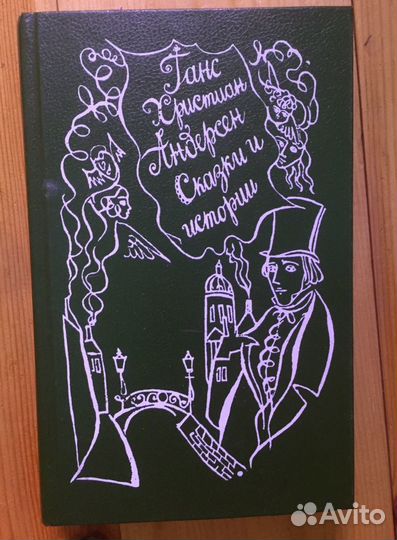 Ганс
Христиан
Андерсен
Сказки и
истории
Avito